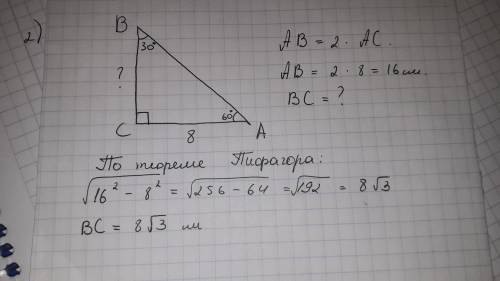 2)
B
30°
?
C
60°
A
8
AB = 2 · AC.
AB = 2 · 8 = 16 см.
BC = ?
По теореме Пифагора:
√16² - 8² = √256 - 64 = √192 = 8√3
BC = 8√3 см